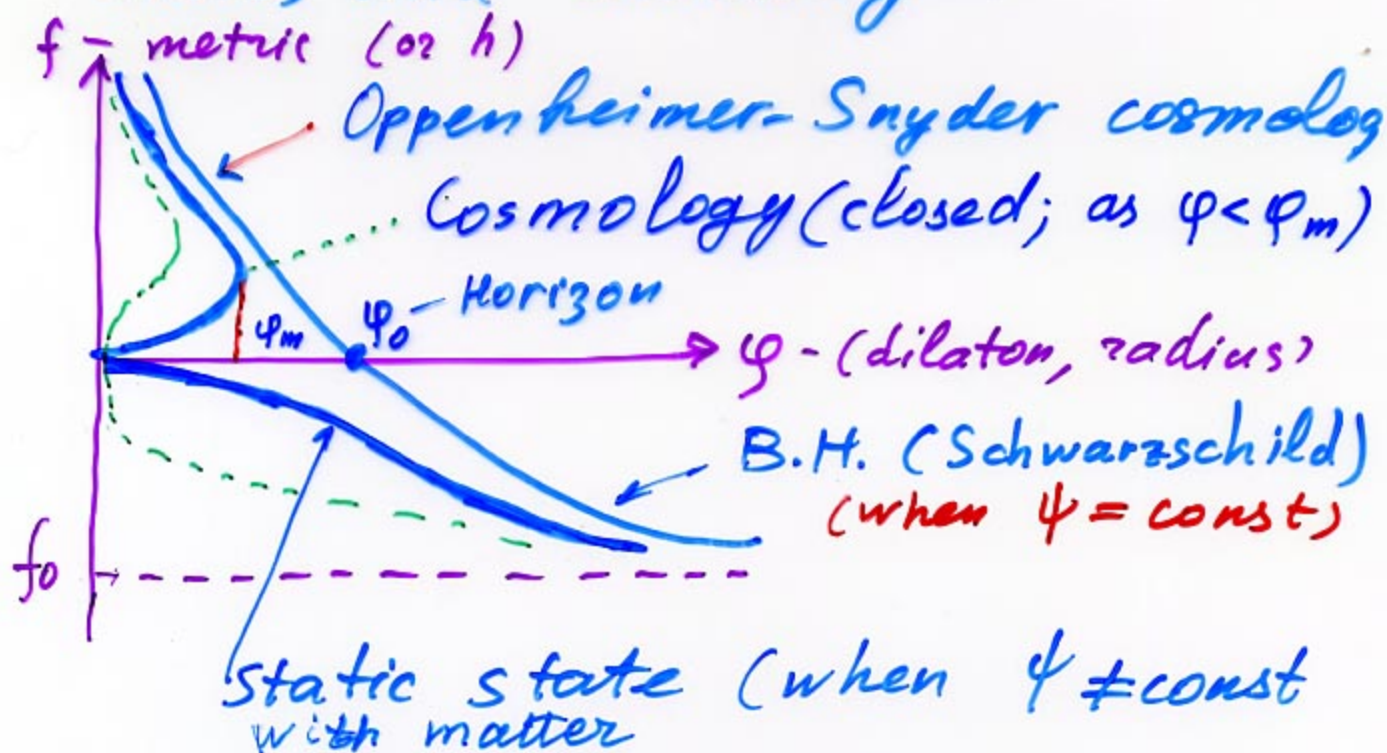 f - metric (or h)
Oppenheimer-Snyder cosmolog
Cosmology (closed; as φ<φₘ)
φₘ
φ₀ - Horizon
φ - (dilaton, radius)
B.H. (Schwarzschild)
(when ψ = const)
f₀
Static state (when ψ ≠ const
with matter